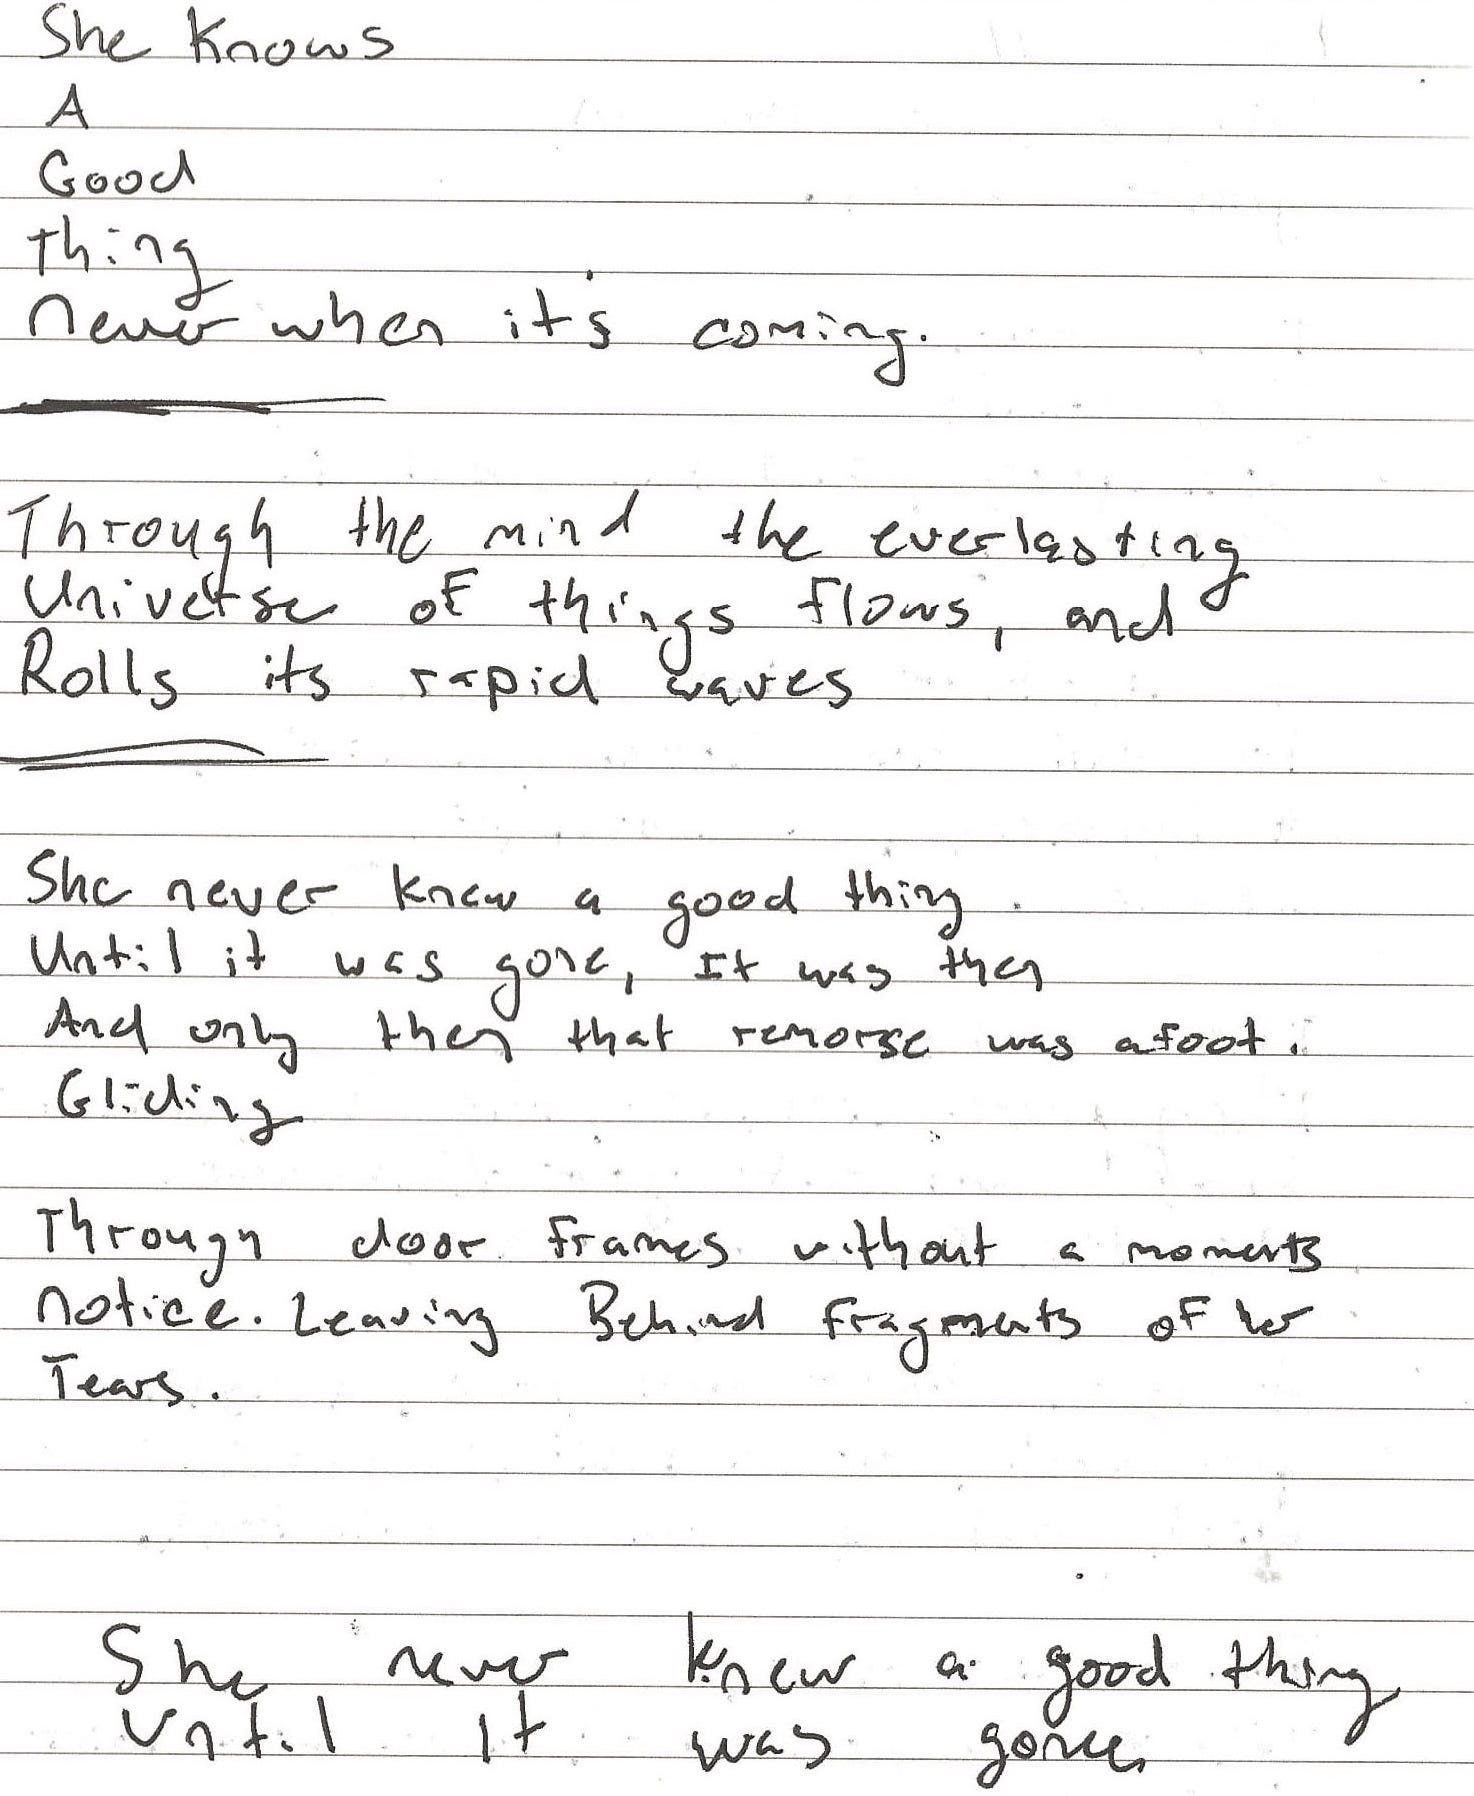 She Knows
A
Good
Thing
never when it's coming.
Through the mind the everlasting
Universe of things flows, and
Rolls its rapid waves
She never knew a good thing.
Until it was gone, It was then
And only then that remorse was afoot.
Gliding
Through door frames without a moments
notice. Leaving Behind fragments of her
Tears.
She never knew a good thing
Until it was gone